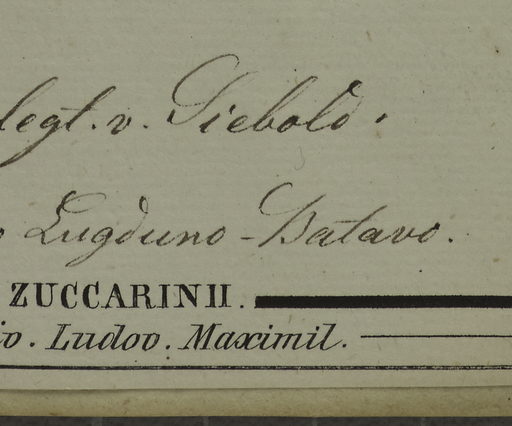 legt. v. Siebold.
Lugduno-Batavo.
ZUCCARINII.
Ludov. Maximil.